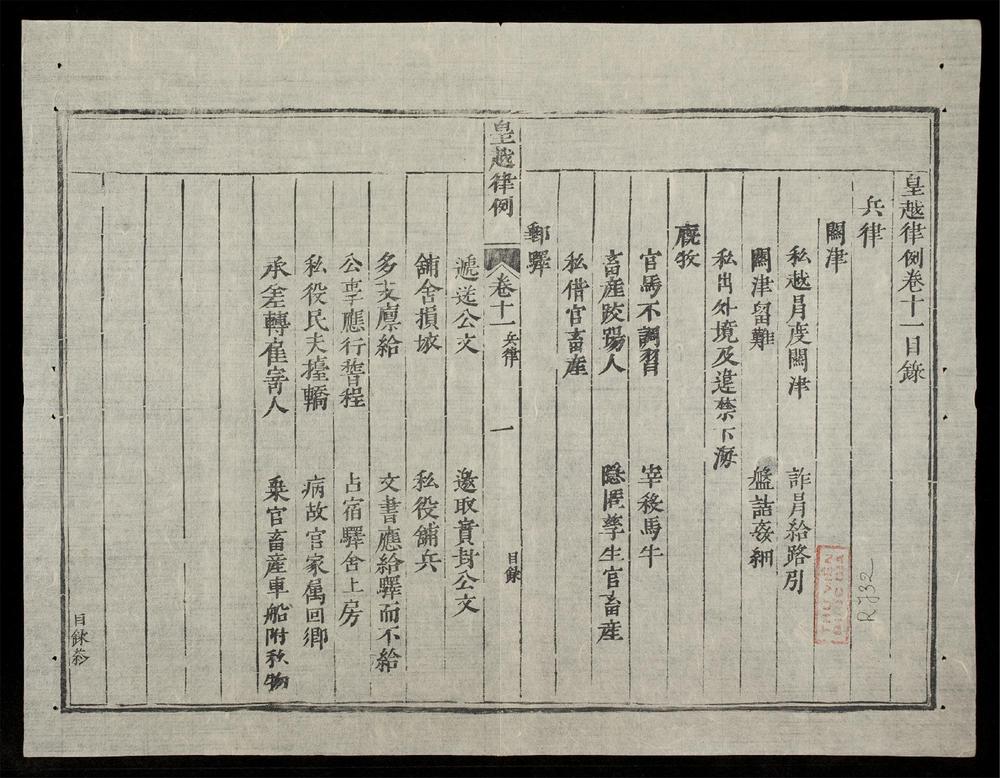 皇越律例卷十一目錄
兵律
關津
私越冐度關津 詐冐給路引
關津留難 盤詰姦細
私出外境及違禁下海
廐牧
官馬不調習 宰殺馬牛
畜產咬踢人 隱匿孳生官畜產
私借官畜產
皇越律例 卷十一 兵律 一 目錄
郵驛
遞送公文 邀取實封公文
舖舍損壞 私役舖兵
多支廪給 文書應給驛而不給
公事應行稽程 占宿驛舍上房
私役民夫擡轎 病故官家属回鄉
承差轉雇寄人 乗官畜產車船附私物
目錄終
THƯ VIỆN
QUỐC GIA
R.932